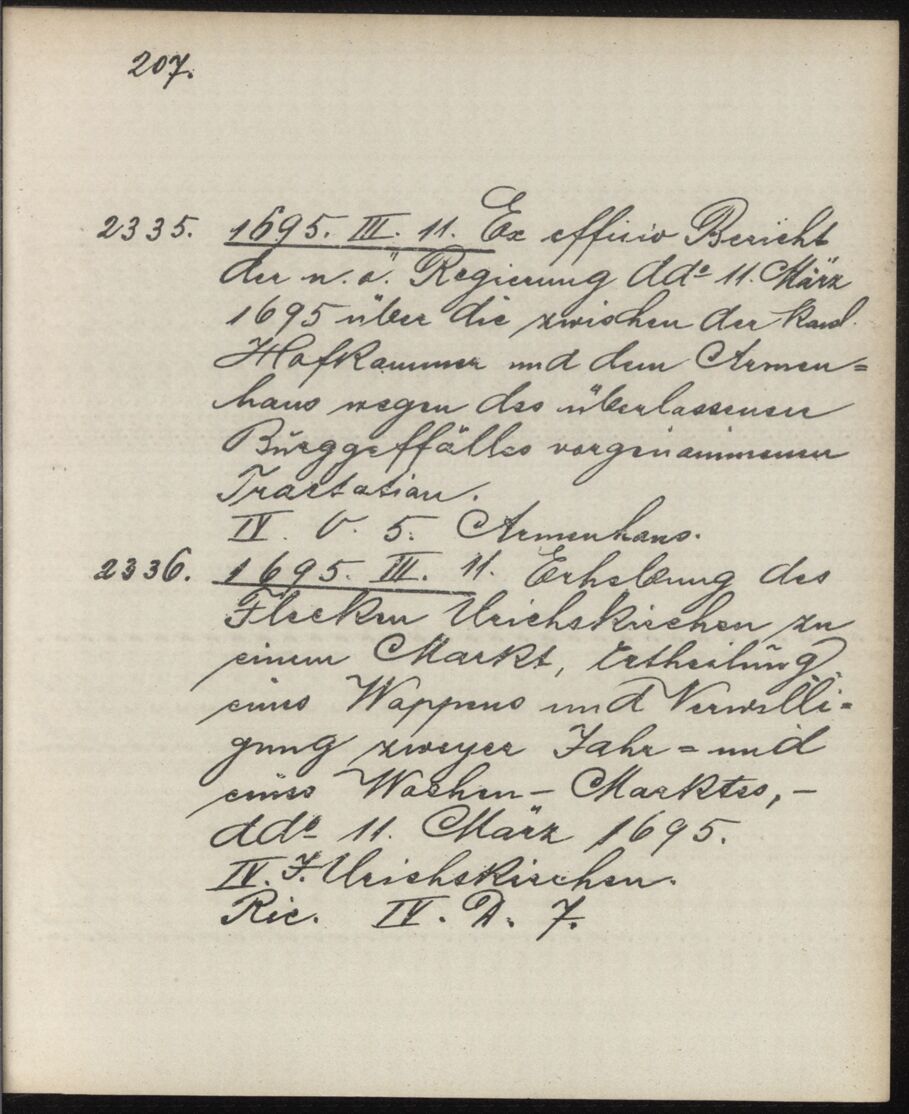 207.
2335. 1695. III. 11. Ex officio Bericht
der n. ö. Regierung ddo 11. März
1695 über die zwischen der
Hofkammer und dem Armen=
haus wegen des überlassenen
Burggeffälles vorgenommenen
Tractation.
IV. O. 5. Armenhaus.
2336. 1695. III. 11. Erhebung des
Flecken Ulrichskirchen zu
einem Markt, Ertheilung
eines Wappens und Verwilli=
gung zweyer Jahr= und
eines Wochen- Marktes, -
ddo 11. März 1695.
IV. F. Ulrichskirchen.
Ric. IV. D. 7.